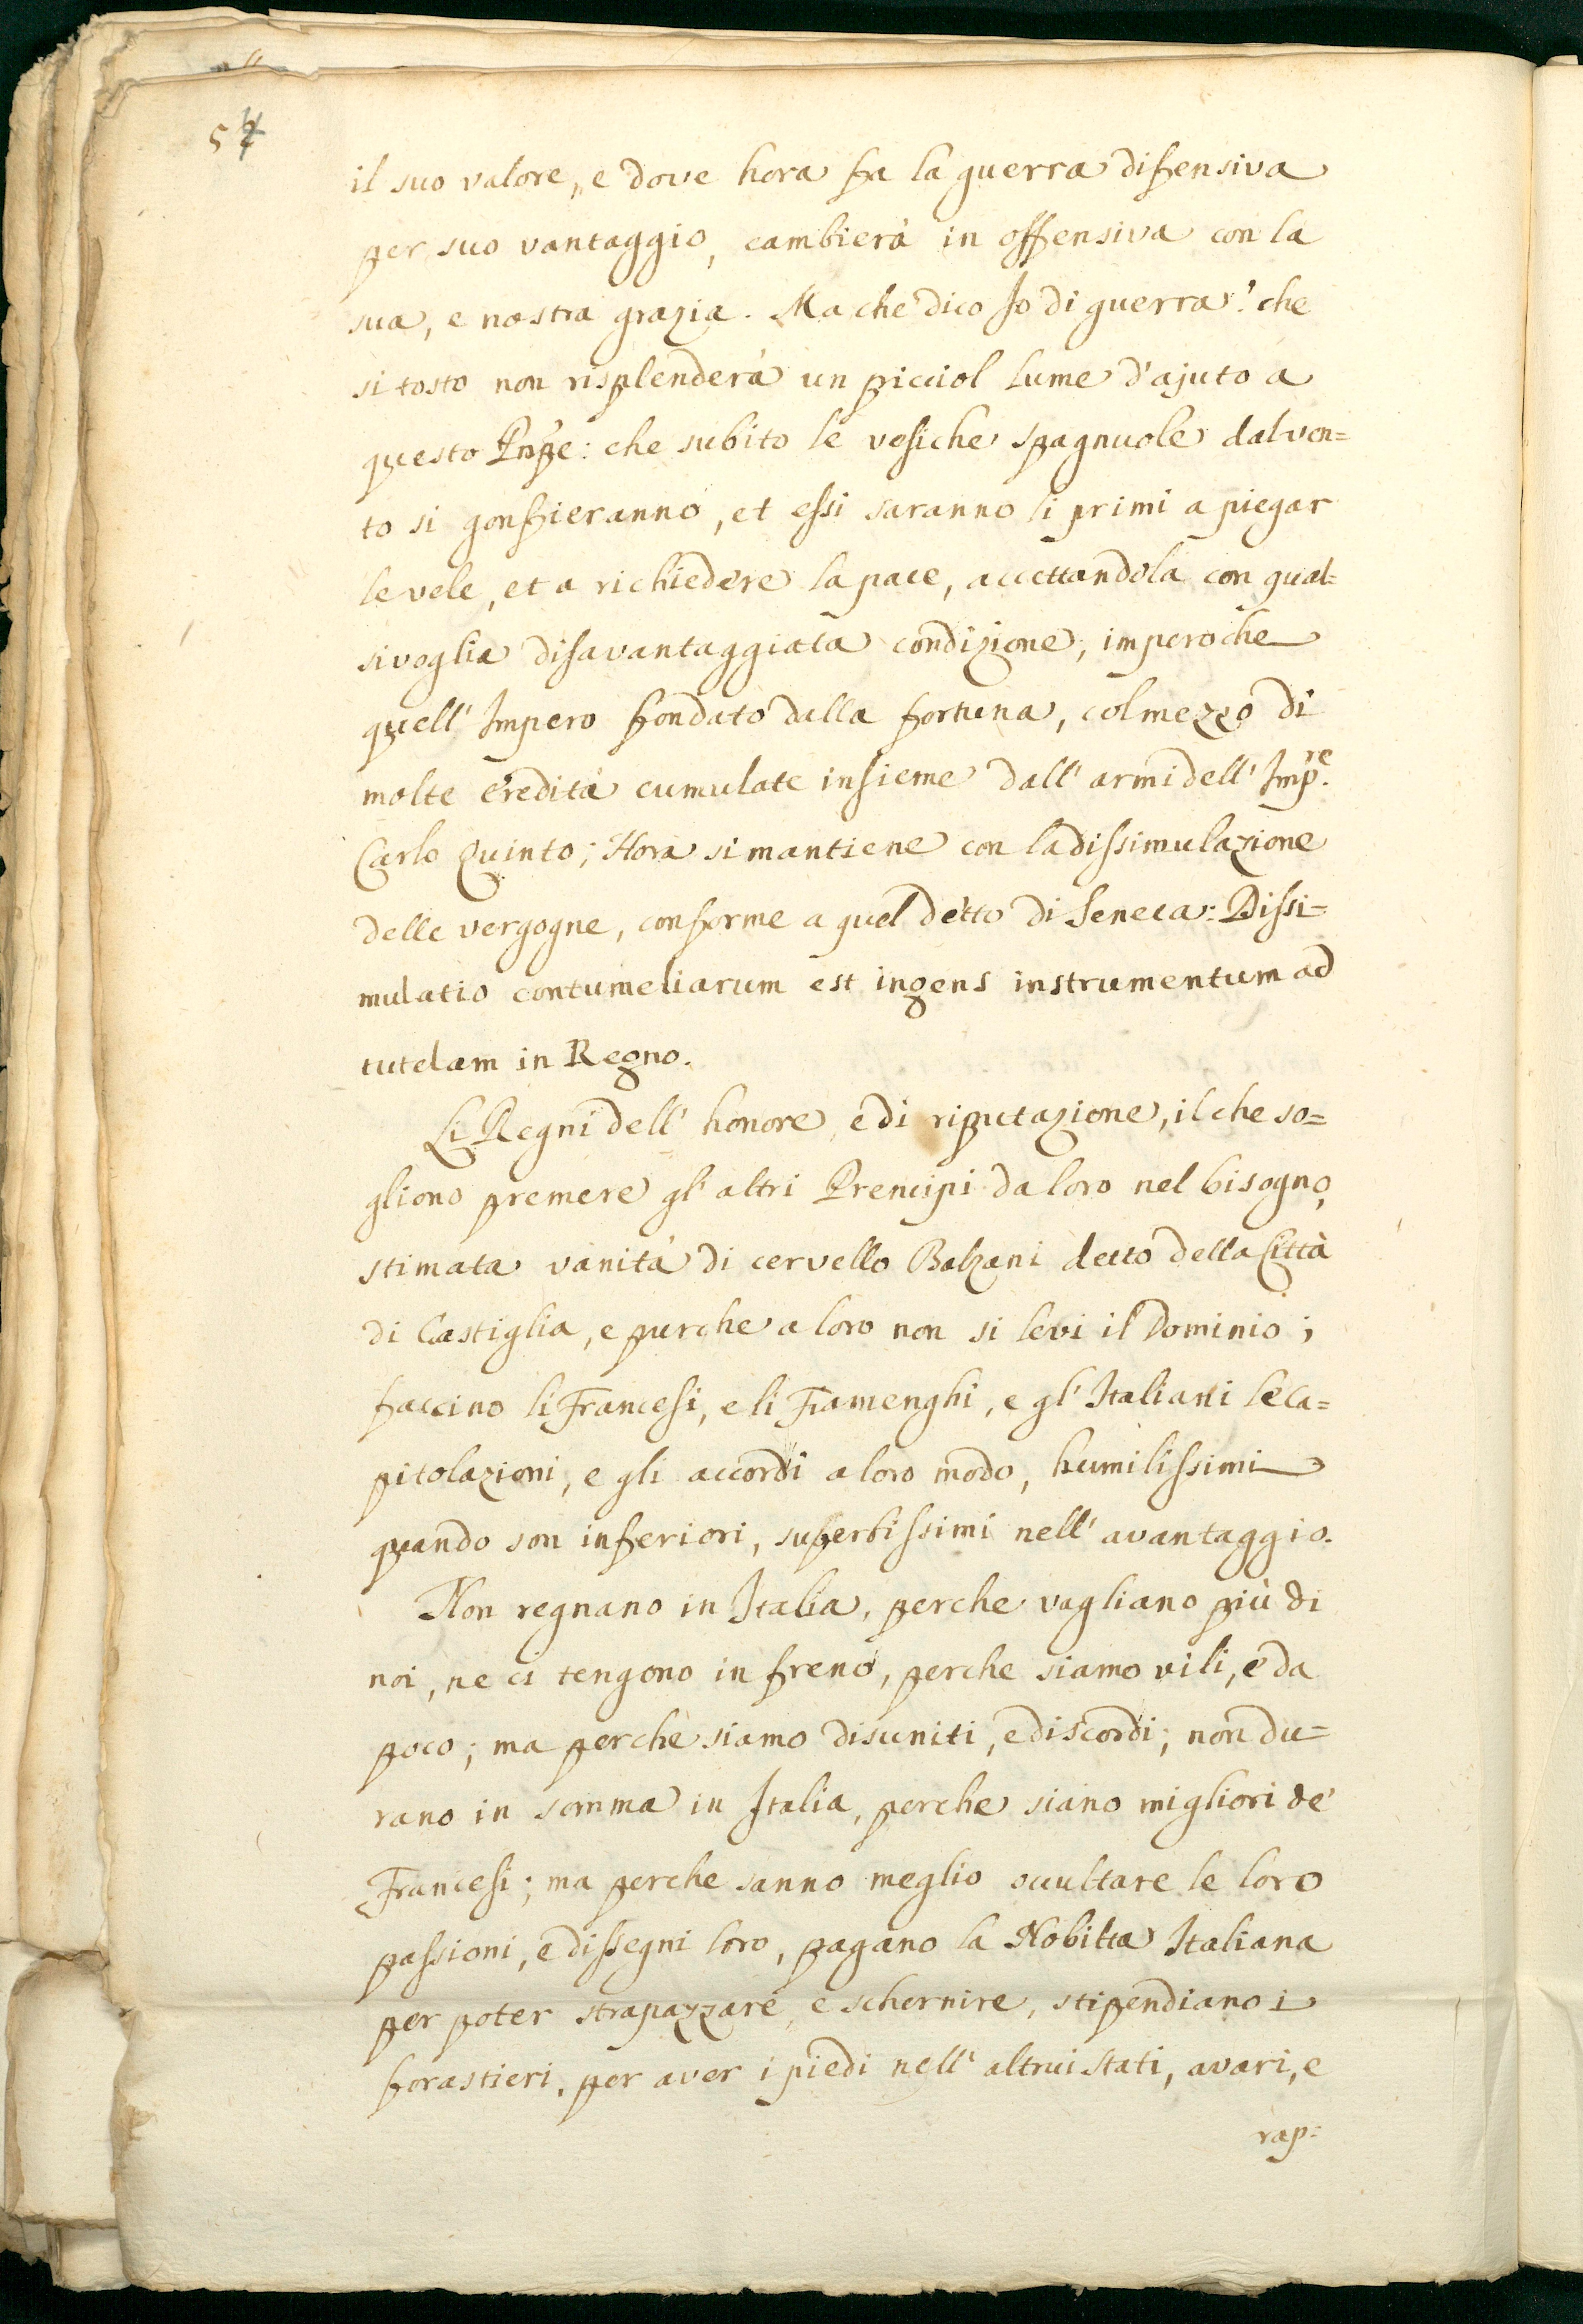 il suo valore, e dove hora fa la guerra difensiva
per suo vantaggio, cambierà in offensiva con la
sua, e nostra grazia. Ma che dico Io di guerra? che
si tosto non risplenderà un picciol lume d'ajuto a
questo Pnpe: che subito le vesiche spagnuole dal ven=
to si gonfieranno, et essi saranno li primi a piegar
le vele, et a richiedere la pace, accettandola con qual=
sivoglia disavantaggiata condizione; imperoche
quell' Impero fondato dalla fortuna, col mezzo di
molte eredità cumulate insieme dall' armi dell' Imp.re
Carlo Quinto; Hora si mantiene con la dissimulazione
delle vergogne, conforme a quel detto di Seneca: Dissi=
mulatio contumeliarum est ingens instrumentum ad
tutelam in Regno.
Li Regni dell' honore, e di riputazione, il che so=
gliono premere gl' altri Prencipi da loro nel bisogno,
stimata vanità di cervello Balzani detto della Città
di Castiglia, e purche a loro non si levi il Dominio;
faccino li Francesi, e li Fiamenghi, e gl' Italiani le ca=
pitolazioni, e gli accordi a loro modo, humilissimi
quando son inferiori, superbissimi nell' avantaggio.
Non regnano in Italia, perche vagliano più di
noi, ne ci tengono in freno, perche siamo vili, e da
poco; ma perche siamo disuniti, e discordi; non du=
rano in somma in Italia, perche siano migliori de'
Francesi; ma perche sanno meglio ocultare le loro
passioni, e dissegni loro, pagano la Nobiltà Italiana
per poter strapazzare, e schernire, stipendiano i
forastieri, per aver i piedi nell' altrui stati, avari, e
rap=